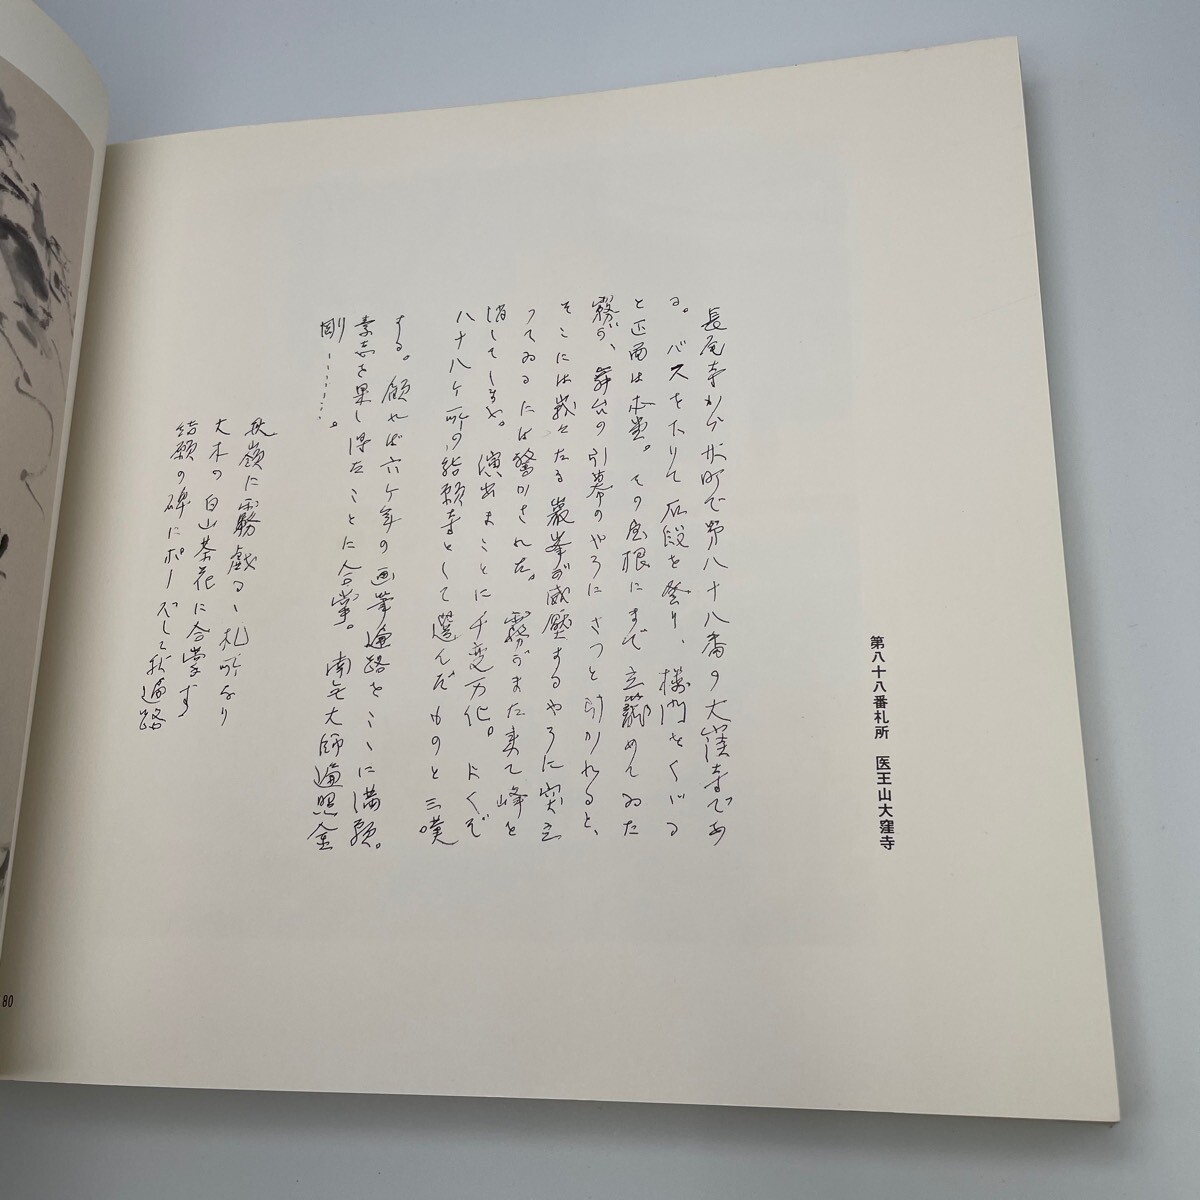 第八十八番札所 医王山大窪寺
長尾寺からバス町で第八十八番の大窪寺であ
る。バスを下りて石段を登り、楼門をくゞる
と正面は本堂。その屋根にまで立籠めてゐた
霧が、舞台の引幕のやうにさつと引かれると、
そこには峨々たる巌峯が威壓するやうに突立
つてゐるには驚かされた。霧がまた来て峰を
消してしまふ。演出まことに千変万化。よくぞ
八十八ヶ所の結願寺として選んだものと三嘆
する。顧れば六ヶ年の画筆遍路をこゝに満願。
素志を果し得たことに合掌。南無大師遍照金
剛………。
嶺に霧戯るゝ札所なり
大木の白山茶花に合掌す
結願の碑にポーズして秋遍路
80